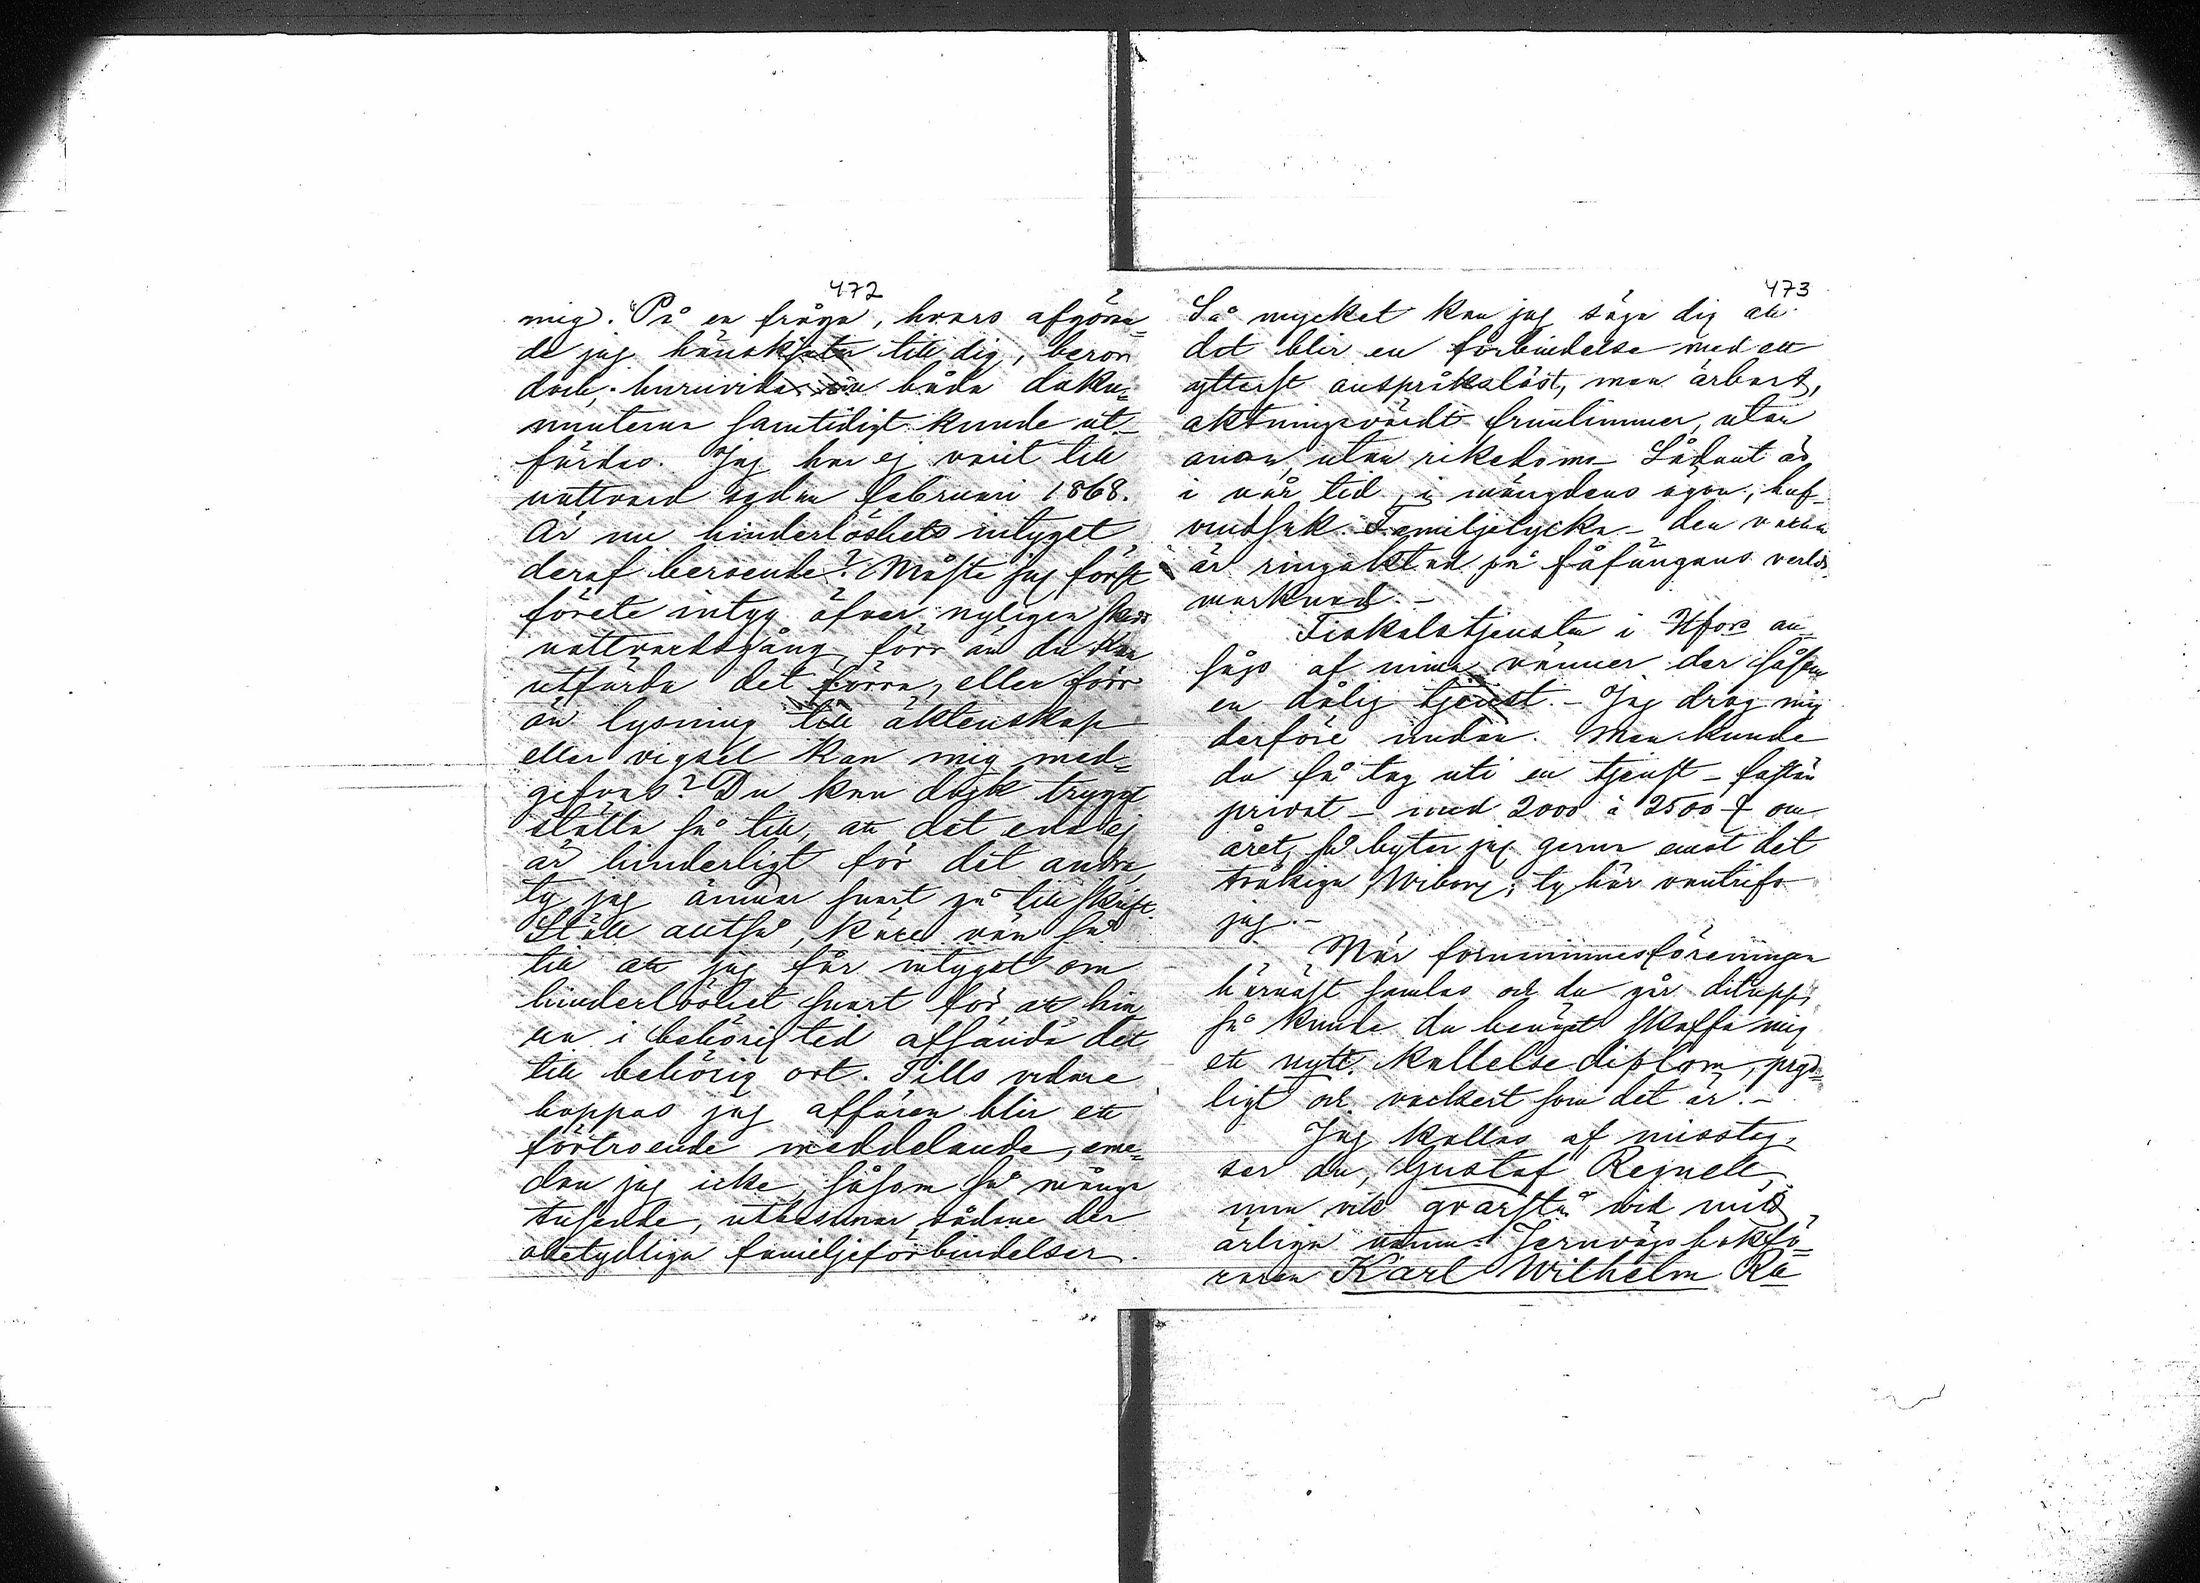 472
mig. "På en fråga, hvars afgöran=
de jag hänskjuter till dig, beror
dock, huruvida båda doku=
menterna samtidigt kunde ut-
färdas. Jag har ej varit till
nattvard sedan februari 1868.
Är nu hinderlöshets intyget
deraf beroende? Måste jag först
förete intyg öfver nyligen skedd
nattvardsgång, förr än du kan
utfärda det förra, eller förr
än lysning till äktenskap
eller vigsel kan mig med=
gifvas? Du kan dock tryggt
ställa så till, att det ena ej
är hinderligt för det andra,
ty jag ämnar snart gå till skrift.
Ställ alltså, käre vän så
till att jag får intyget om
hinderlöshet snart för att hin
na i behörig tid afsända det
till behörig ort. Tills vidare
hoppas jag affären blir ett
förtroende meddelande, eme=
dan jag icke, såsom så många
tusende, utbasunar sådane der
obetydliga familjeförbindelser.
473
Så mycket kan jag säga dig att
det blir en förbindelse med ett
ytterst anspråkslöst, men ärbart,
aktningsvärdt fruntimmer, utan
anor, utan rikedom. Sådant är
i vår tid, i mängdens ögon, huf-
vudsak. Familjelycka - den varan
är ringaktad på fåfängans verlds
marknad. -
Fiskalstjensten i Hfors an
sågs af mina vänner der såsom
en dålig tjenst. - Jag drog mig
derföre undan. Men kunde
du få tag uti en tjenst - fastän
privat - med 2000 à 2500 om
året, så byter jag gerna emot det
tråkiga Wiborg, ty här vantrifs
jag. -
När fornminnesföreningen
härnäst samlas och du går ditupp,
så kunde du benäget skaffa mig
ett nytt kallelse diplom, pryd=
ligt och vackert som det är. -
Jag kallas af misstag,
ser du, Gustaf Regnell,
men vill qvarstå vid mitt
ärliga namn: Jernvägsbokfö=
raren Karl Wilhelm Re